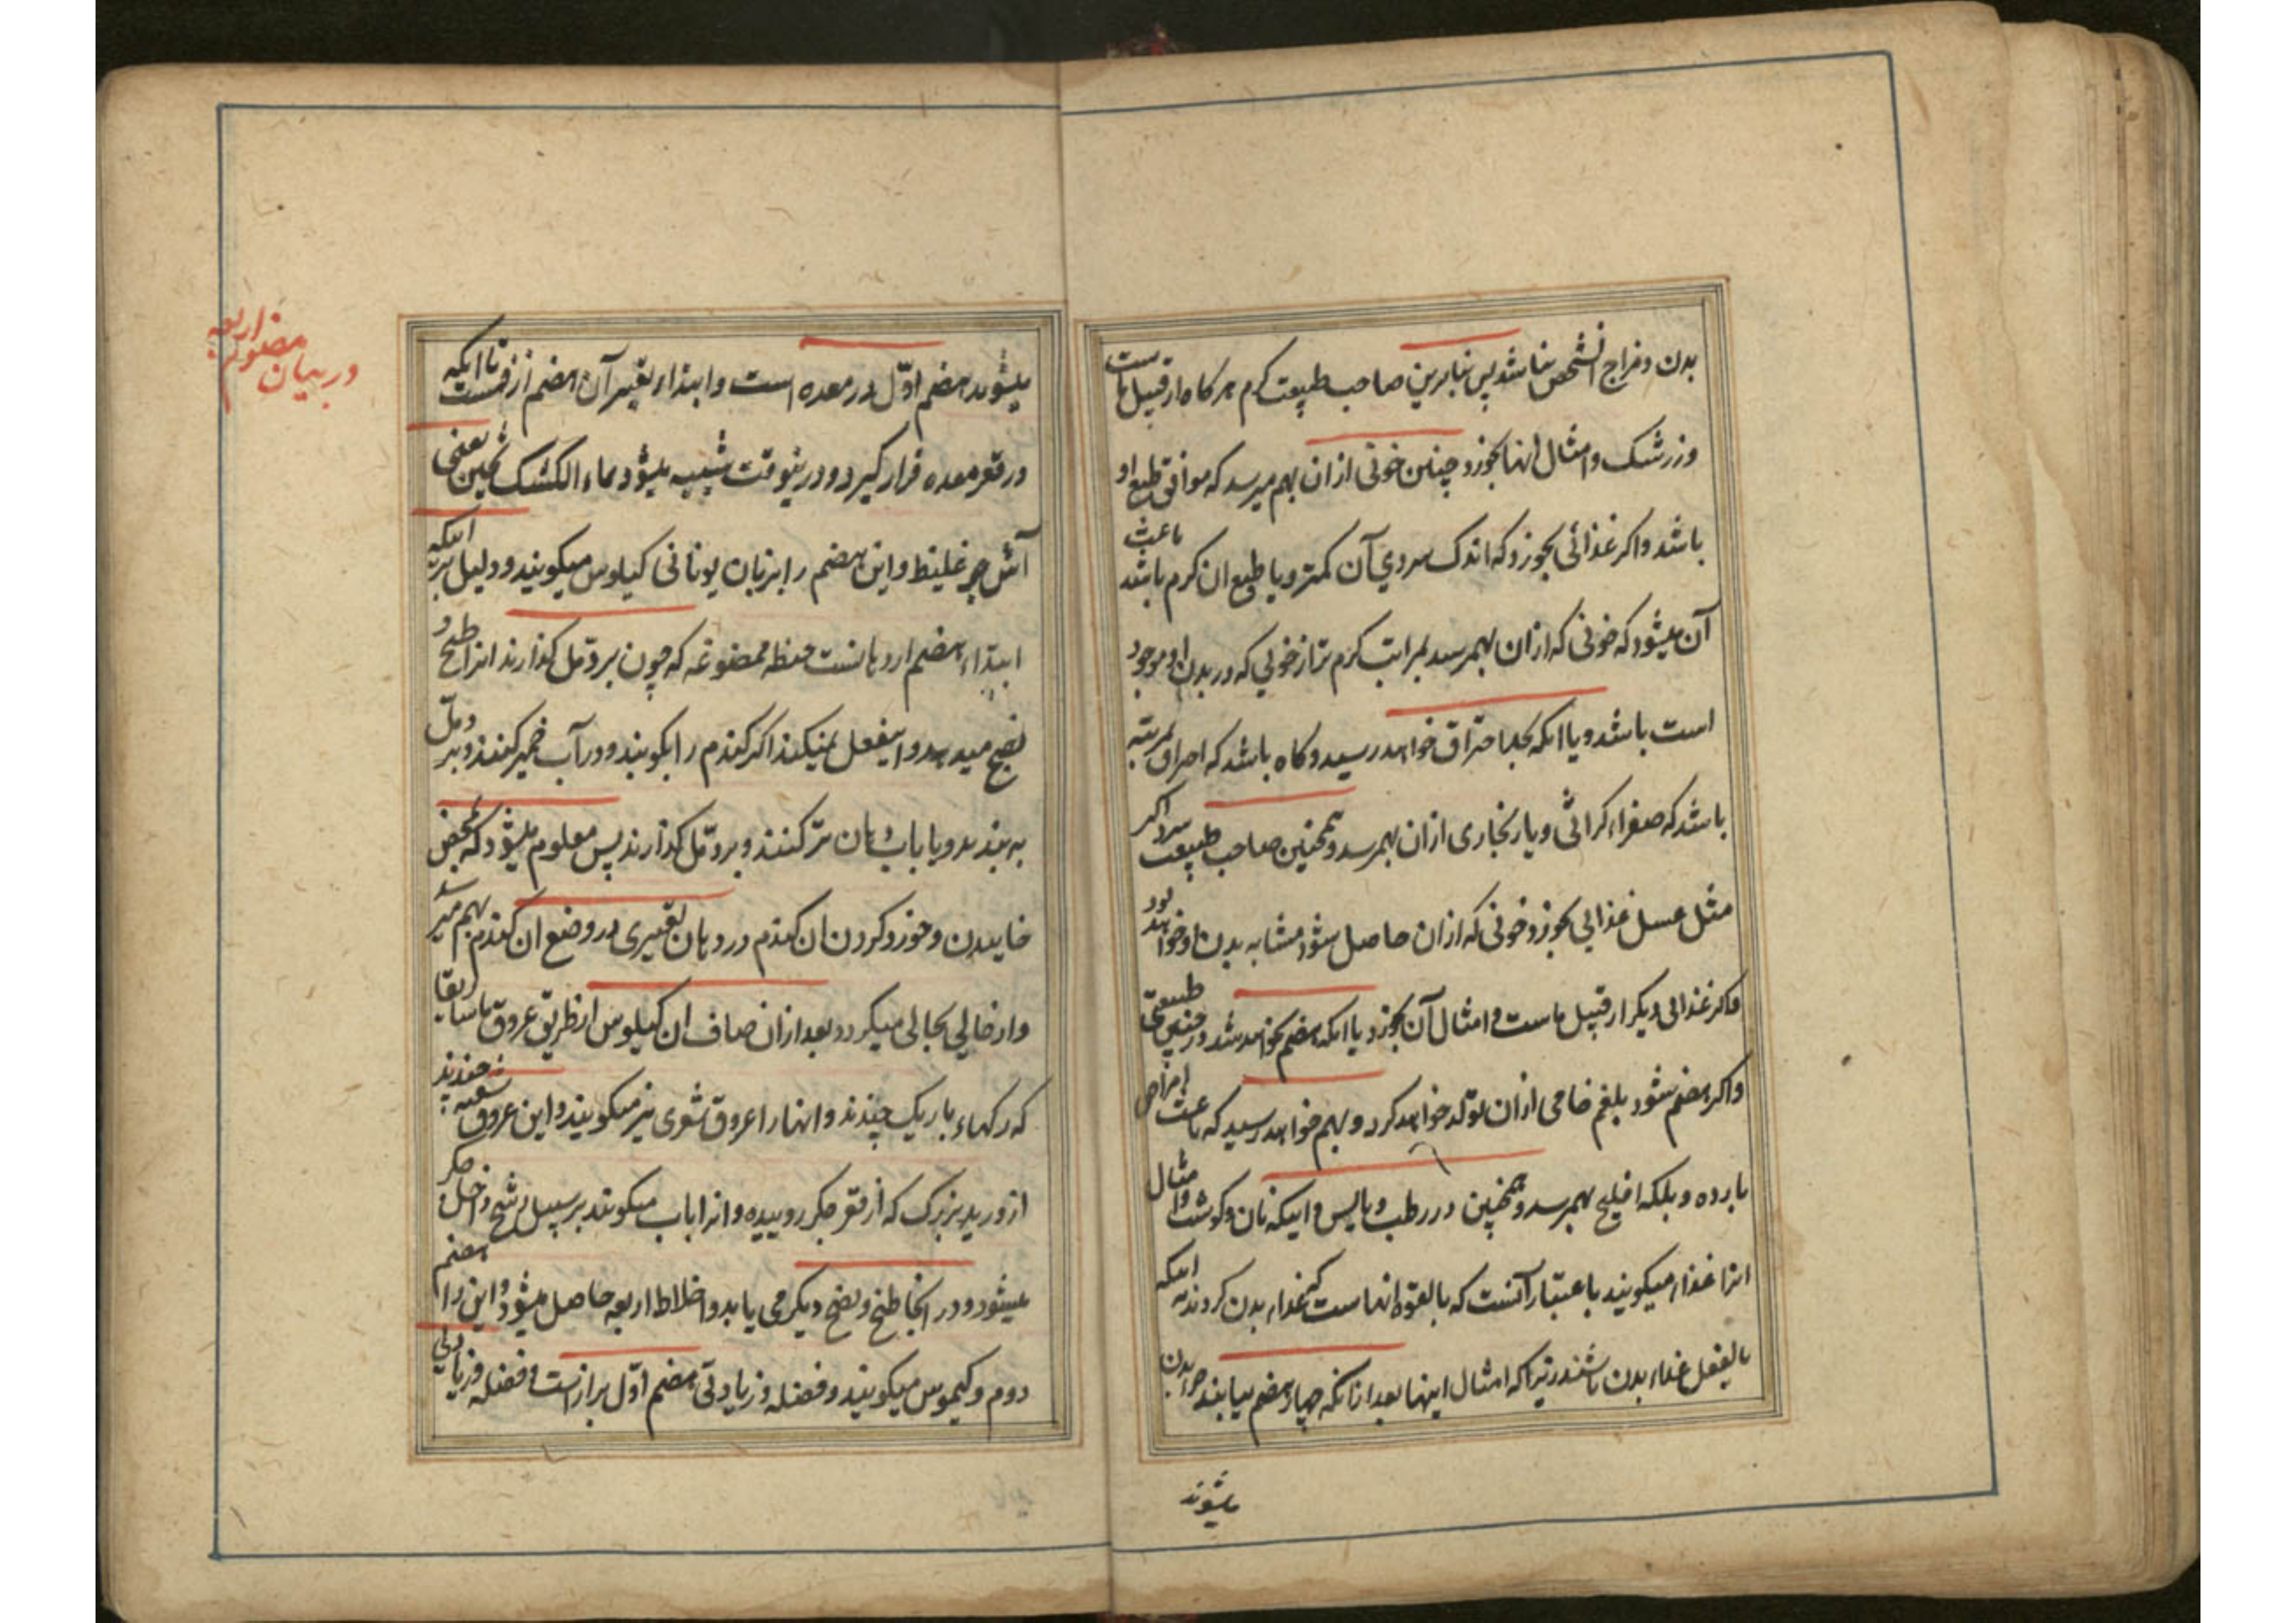 بدن و مزاج آنشخص نباشد پس بنابرین صاحب طبیعت کرم هرکاه از قبیل ماست
وزرشک و امثال انها بخورد چنین خونی ازان بهم میرسد که موافق طبع او
باشد و اکر غذائی بخورد که اندک سردی آن کمتر و یا طبع ان کرم باشد باعث
آن میشود که خونی که ازان بهمرسد بمراتب کرم تر از خونی که در بدن او موجود
است باشد و یا انکه بحد احتراق خواهد رسید و کاه باشد که احراق بمرتبه
باشد که صفراء کراثی و یا زنجاری ازان بهمرسد و همچنین صاحب طبیعت سرد اکر
مثل عسل غذایی بخورد خونی که ازان حاصل شود مشابه بدن او خواهد بود
و اکر غذایی دیکر از قبیل ماست و امثال آن بخورد یا انکه هضم نخواهد شد در چنین طبیعتی
و اکر هضم شود بلغم خامی ازان تولد خواهد کرد و بهم خواهد رسید که باعث امراض
بارده و بلکه افلیج بهمرسد و همچنین در رطب و یابس و اینکه نان و کوشت و امثال
انرا غذا میکویند باعتبار آنست که بالقوه انهاست که غذاء بدن کردند نه اینکه
بالفعل غذاء بدن باشند زیرا که امثال اینها بعد از انکه چهار هضم میابند جزء بدن
میشوند
در بیان هضوم اربعه
میشوند هضم اوّل در معده است و ابتداء تغییر آن هضم از فمست تا انکه
در قعر معده قرار کیرد و درینوقت شبیه میشود بماء الکشک ثخین یعنی
آش جو غلیظ و این هضم را بزبان یونانی کیلوس میکویند و دلیل بر اینکه
ابتداء هضم از دهانست حنطه ممضوغه که چون بر دمل کذارند انرا طبخ و
نضج میدهد و اینفعل نمیکند اکر کندم را بکوبند و در آب خمیر کنند و بر دمل
به بندند و یا باب دهان تر کنند و بر دمل کذارند پس معلوم میشود که بمحض
خاییدن و خورد کردن ان کندم در دهان تغییری در وضع ان کندم بهم میرسد
و از حالی بحالی میکردد و بعد ازان صاف ان کیلوس از طریق عروق ماساریقا
که رکهاء باریک چندند و انها را عروق شعری نیز میکویند و این عروق شعبه چندند
از ورید بزرک که از قعر جکر روییده و انرا باب میکویند بر سبیل رشح داخل جکر
میشود و در انجا طبخ و نضج دیکر می یابد و اخلاط اربعه حاصل میشود و این را هضم
دوم و کیموس میکویند و فضله و زیادتی هضم اوّل برازست و فضله و زیادتی